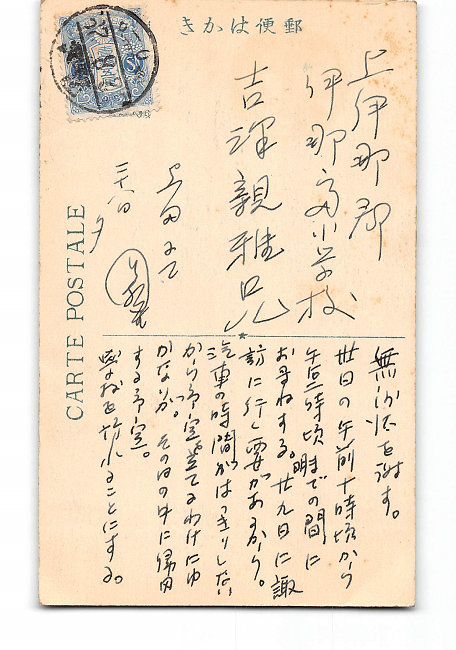 郵便はかき
上伊那郡
伊那高小学校
吉澤親雅兄
上田にて
夕
CARTE POSTALE
無沙汰を謝す。
廿日の午前十時頃から
午后 時頃までの間に
お尋ねする。廿九日に諏
訪に行く要があるから。
汽車の時間がはっきりしない
から予定を立てるわけにゆ
かないが。その日の中に帰
する予定。
ことにする。